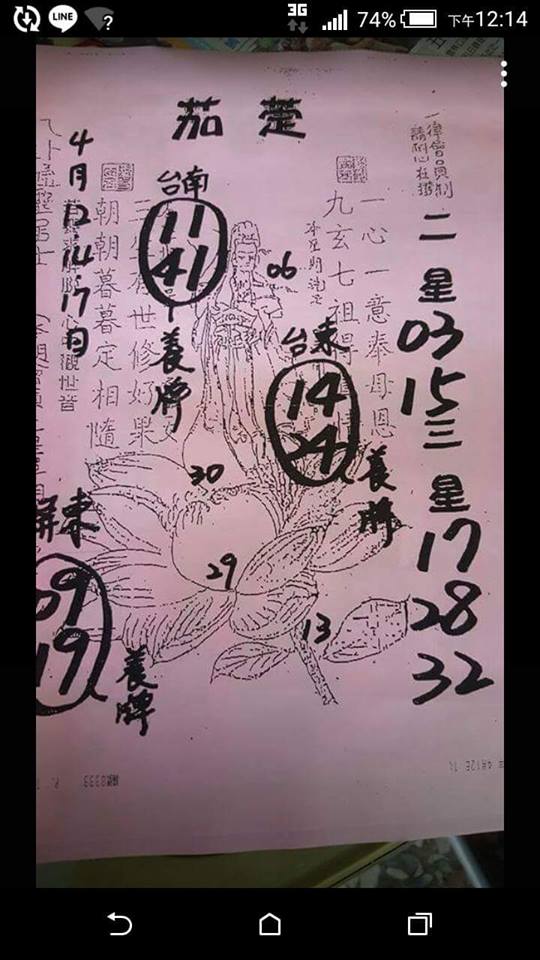 3G 74% 下午12:14
LINE
茄 萣
一律會員制
請耐心在撥
二星
03
15
三星
17
28
32
一心一意奉母恩
九玄七祖得
06
台東
14
24
養牌
台南
11
41
養牌
世修好果
朝朝暮暮定相隨
觀世音
4月12.14.17日
30
29
13
屏東
09
19
養牌